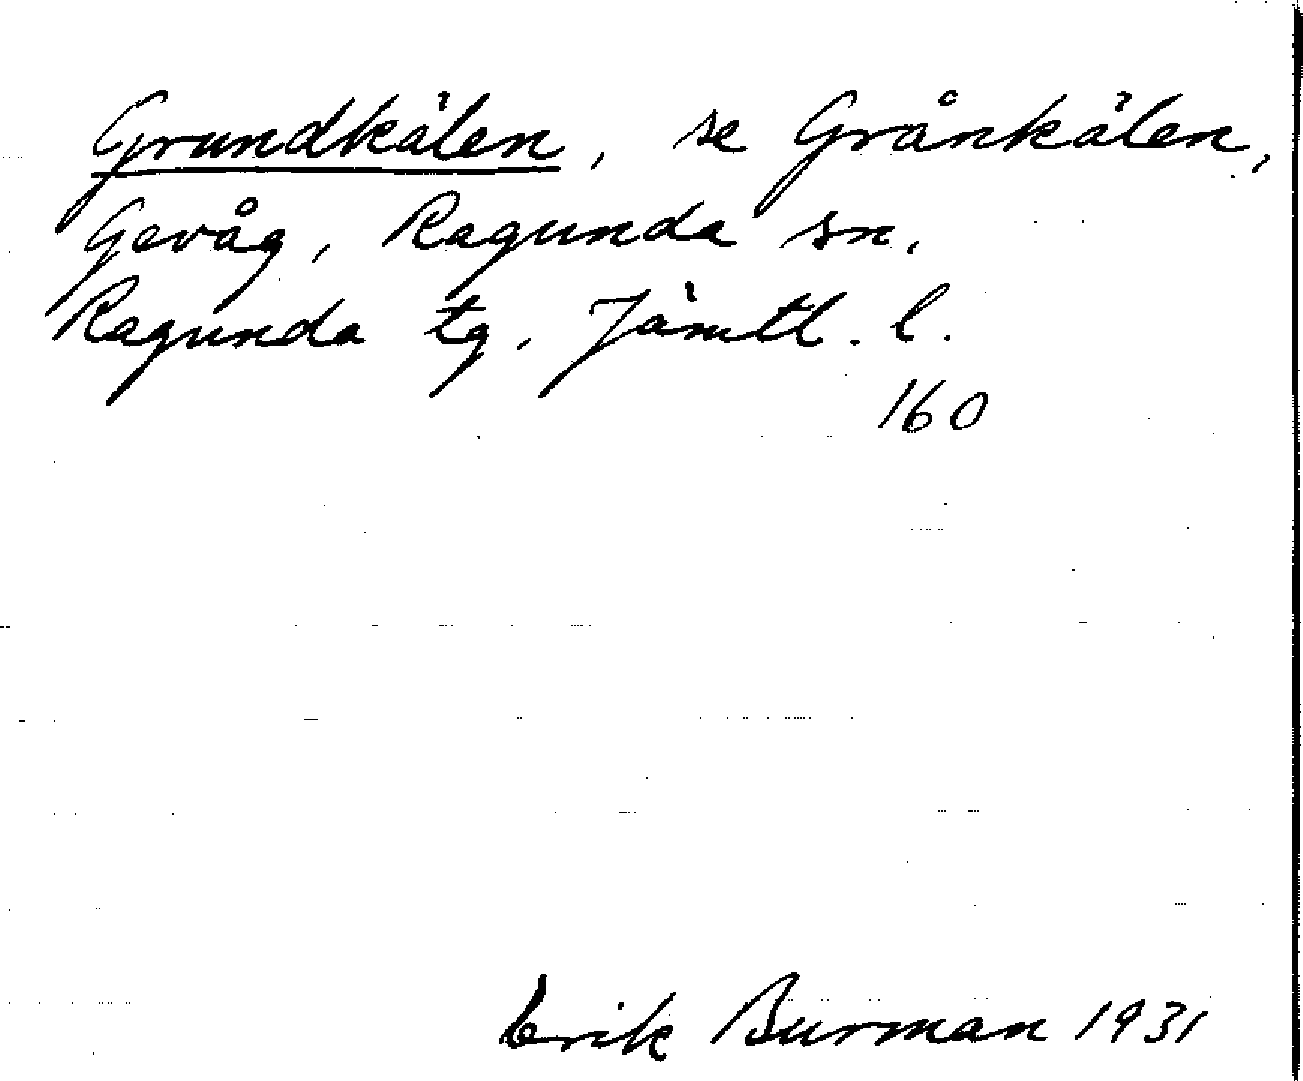 Grundkälen, se Grånkälen,
Gevåg, Ragunda sn,
Ragunda tg, Jämtl. l.
160
Erik Burman 1931